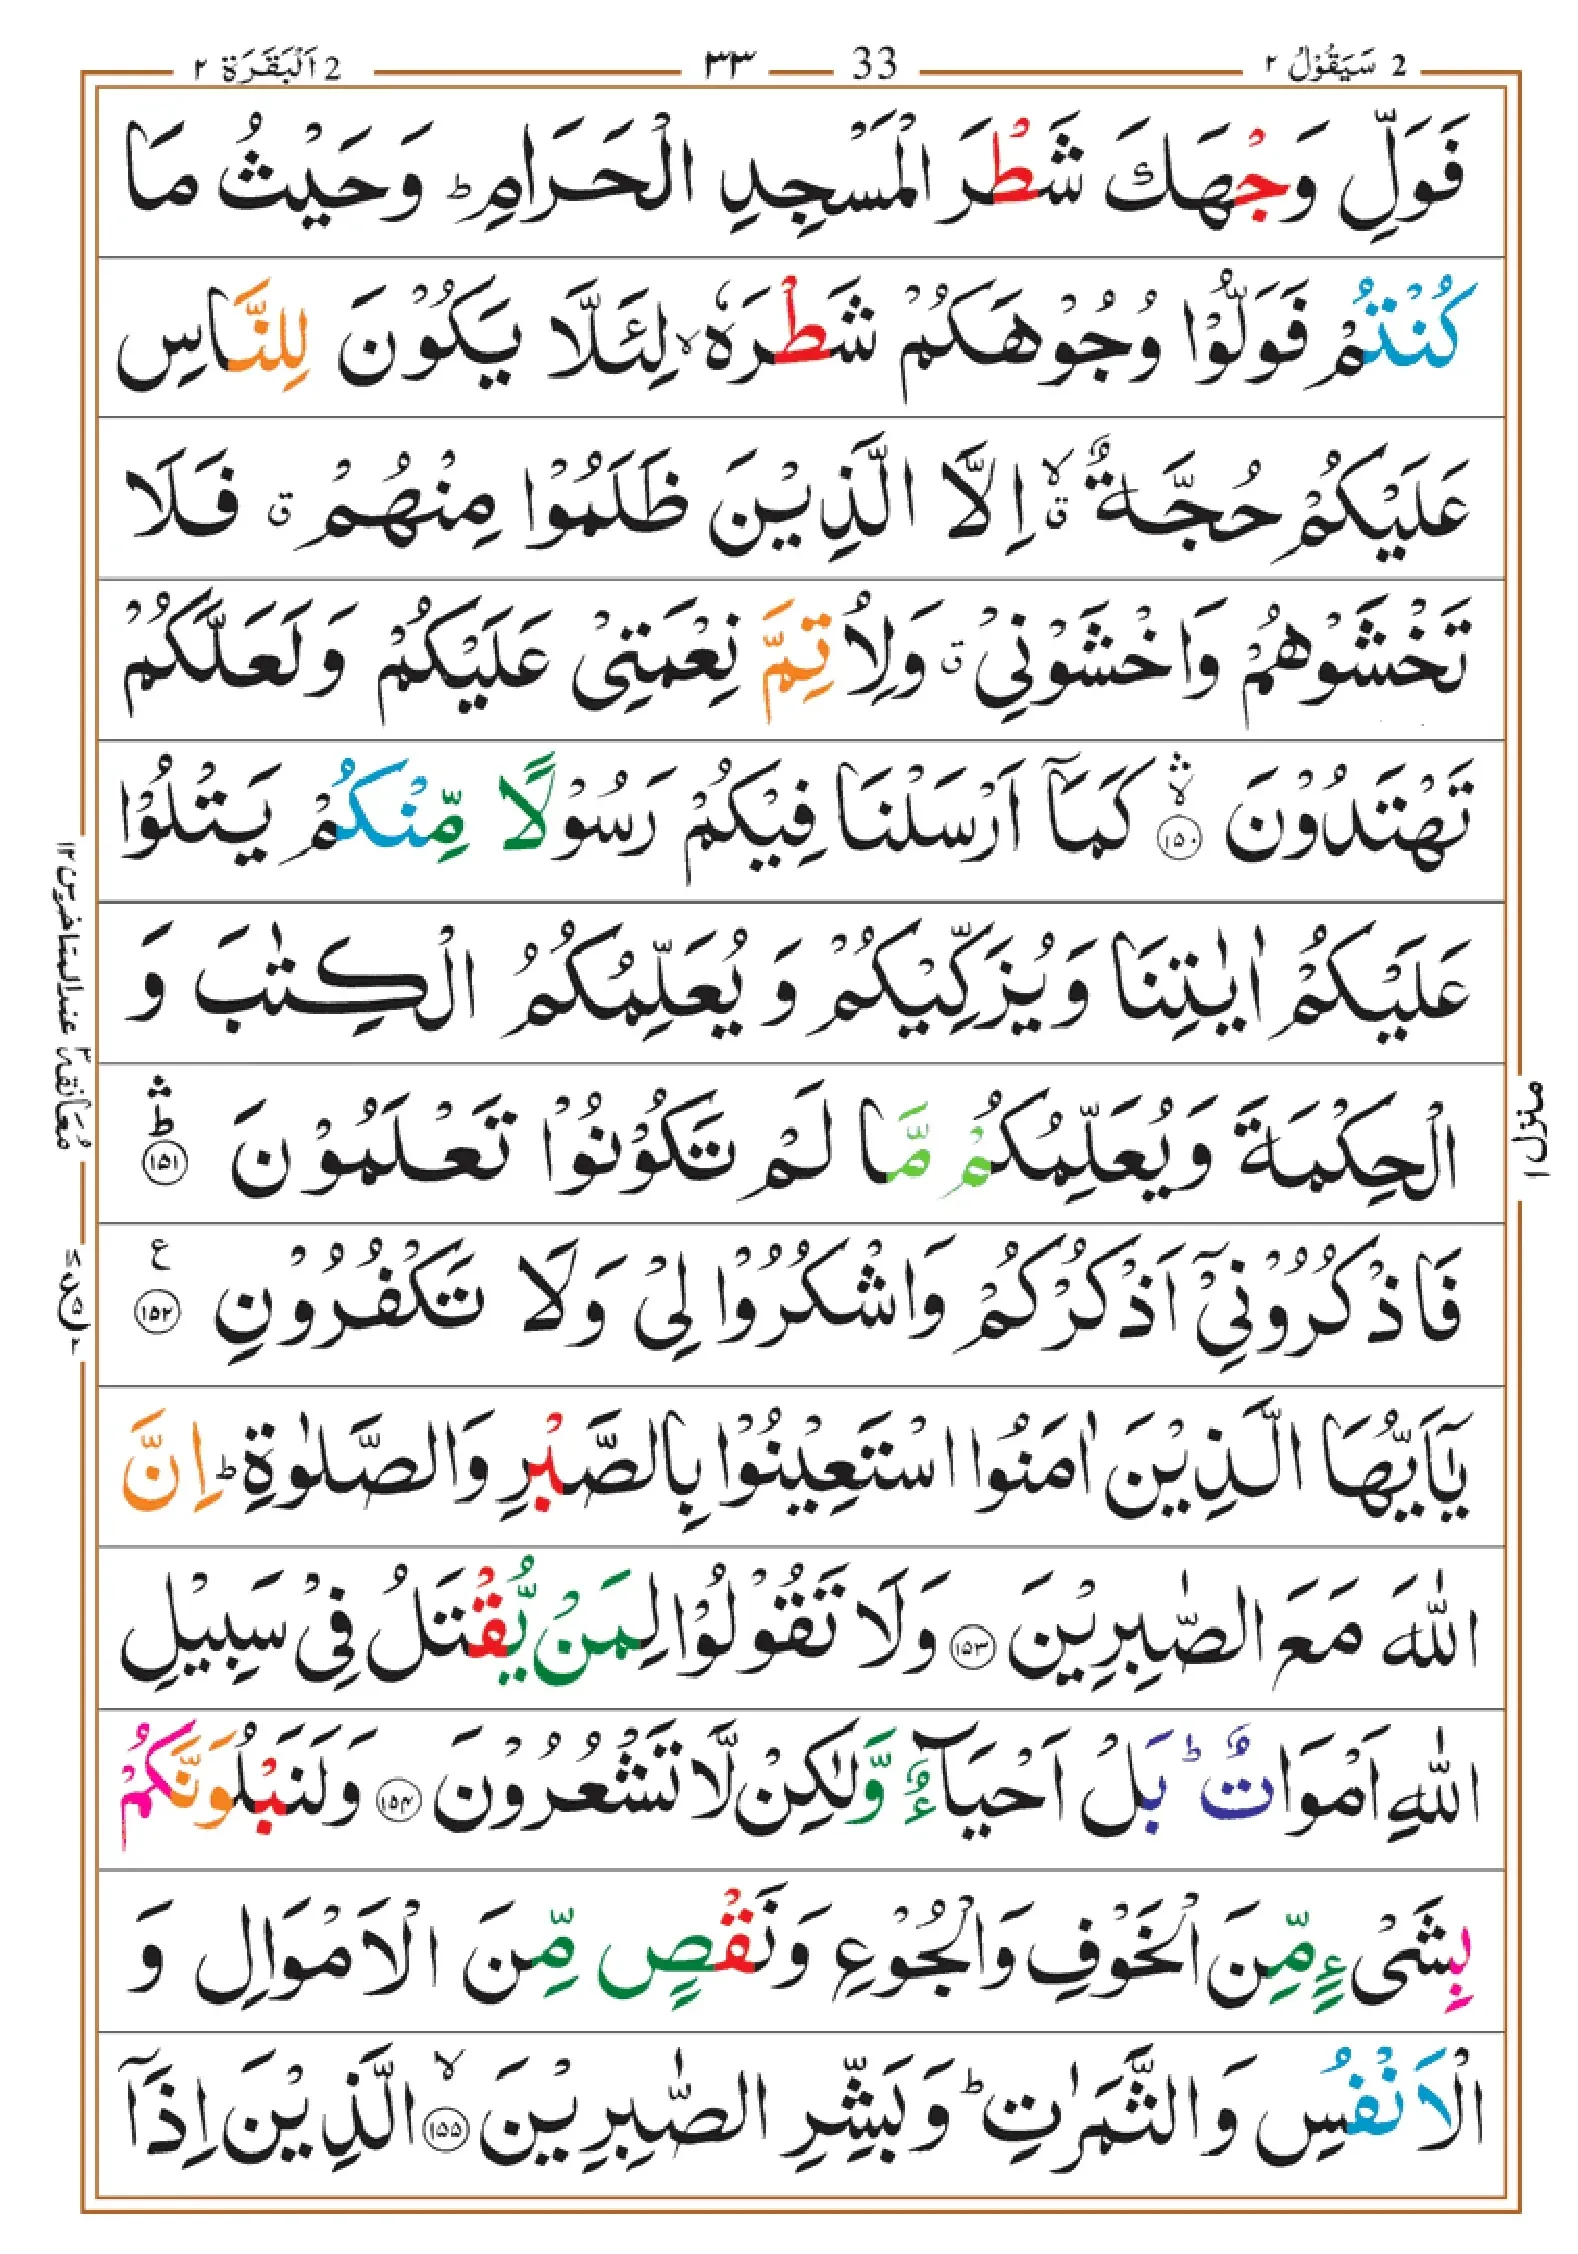 2 سَيَقُوْلُ ٢
33 ٣٣
2 اَلْبَقَرَة ٢
فَوَلِّ وَجْهَكَ شَطْرَ الْمَسْجِدِ الْحَرَامِؕ وَحَيْثُ مَا
كُنْتُمْ فَوَلُّوْا وُجُوْهَكُمْ شَطْرَهٗۙ لِئَلَّا يَكُوْنَ لِلنَّاسِ
عَلَيْكُمْ حُجَّةٌ ۙۗ اِلَّا الَّذِيْنَ ظَلَمُوْا مِنْهُمْ ۗ فَلَا
تَخْشَوْهُمْ وَاخْشَوْنِيْ ۗ وَلِاُتِمَّ نِعْمَتِيْ عَلَيْكُمْ وَلَعَلَّكُمْ
تَهْتَدُوْنَ ۛۙ ١٥٠ كَمَآ اَرْسَلْنَا فِيْكُمْ رَسُوْلًا مِّنْكُمْ يَتْلُوْا
عَلَيْكُمْ اٰيٰتِنَا وَيُزَكِّيْكُمْ وَيُعَلِّمُكُمُ الْكِتٰبَ وَ
الْحِكْمَةَ وَيُعَلِّمُكُمْ مَّا لَمْ تَكُوْنُوْا تَعْلَمُوْنَ ۛؕ ١٥١
فَاذْكُرُوْنِيْٓ اَذْكُرْكُمْ وَاشْكُرُوْا لِيْ وَلَا تَكْفُرُوْنِ ع ١٥٢
يٰٓاَيُّهَا الَّذِيْنَ اٰمَنُوا اسْتَعِيْنُوْا بِالصَّبْرِ وَالصَّلٰوةِؕ اِنَّ
اللّٰهَ مَعَ الصّٰبِرِيْنَ ١٥٣ وَلَا تَقُوْلُوْا لِمَنْ يُّقْتَلُ فِيْ سَبِيْلِ
اللّٰهِ اَمْوَاتٌؕ بَلْ اَحْيَآءٌ وَّلٰكِنْ لَّا تَشْعُرُوْنَ ١٥٤ وَلَنَبْلُوَنَّكُمْ
بِشَيْءٍ مِّنَ الْخَوْفِ وَالْجُوْعِ وَنَقْصٍ مِّنَ الْاَمْوَالِ وَ
الْاَنْفُسِ وَالثَّمَرٰتِؕ وَبَشِّرِ الصّٰبِرِيْنَ ۙ ١٥٥ الَّذِيْنَ اِذَآ
مُعَانَقه ٣ عند المتاخرين ١٢
منزل ١